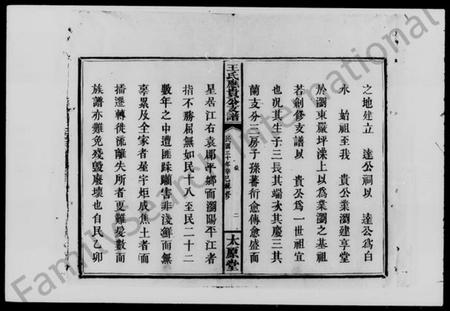 之地建立 達公祠以 達公為白
水 始祖至我 貴公業瀏建享堂
於瀏東嚴坪溪上以為業瀏之基祖
若創修支譜以 貴公為一世祖宜
也況其生子三長其端次其慶三其
蘭支分三房子孫蕃衍愈傳愈盛而
王氏應貴公支譜
民國三十年辛巳續修
太原堂
星居江右袁郡平鄉而瀏陽平江者
指不勝屈無如民十八至民二十二
數年之中遭匪蹂躪害非淺鮮而無
辜累及全家者屋宇炬成焦土者而
播遷轉徙流離失所者更難髮數而
族譜亦難免殘毀廢壞也自民乙卯
FamilySearch International